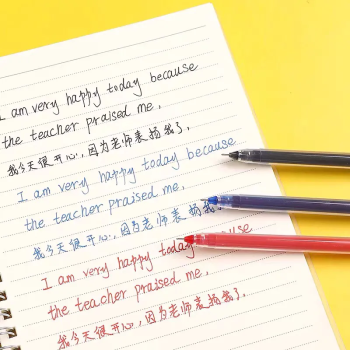 I am very happy today because
the teacher praised me.
我今天很开心,因为老师表扬我了.
I am very happy today because
the teacher praised me.
我今天很开心,因为老师表扬我了.
I am very happy today because
the teacher praised me.
我今天很开心,因为老师表扬我了.